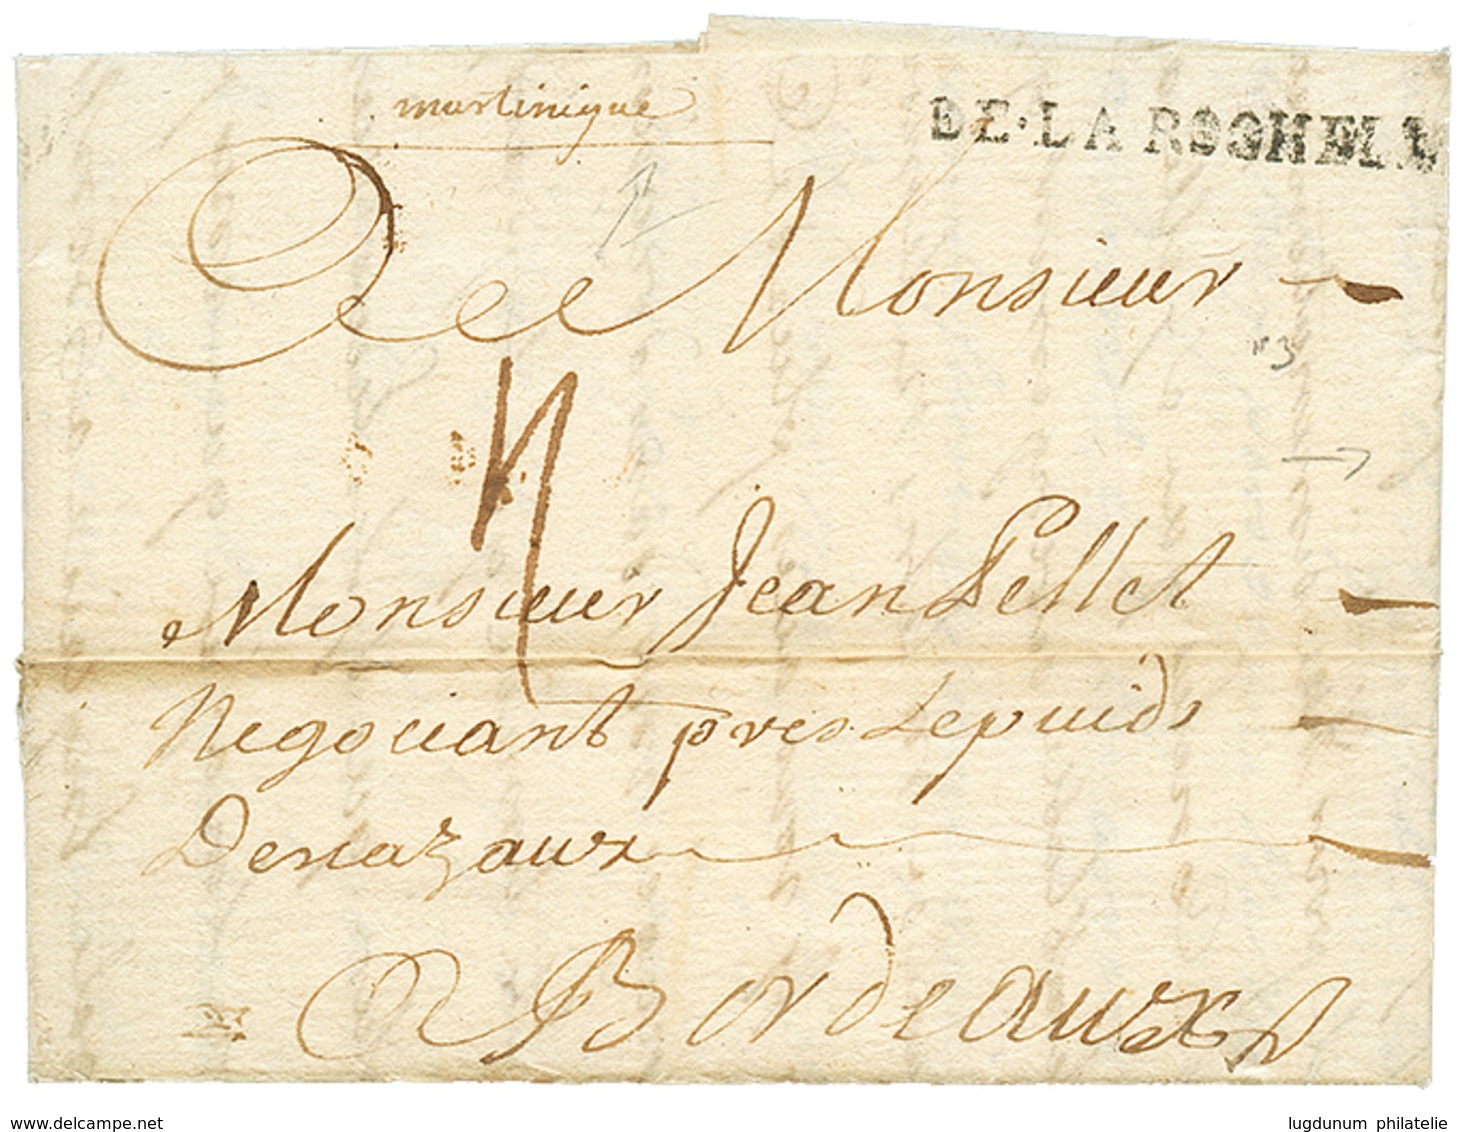 martinique
DE·LAROCHELL
A Monsieur
N 3
Monsieur Jean Pellet
Negociant pres Le puids
Denazaux
A Bordeaux
www.delcampe.net
lugdunum philatelie